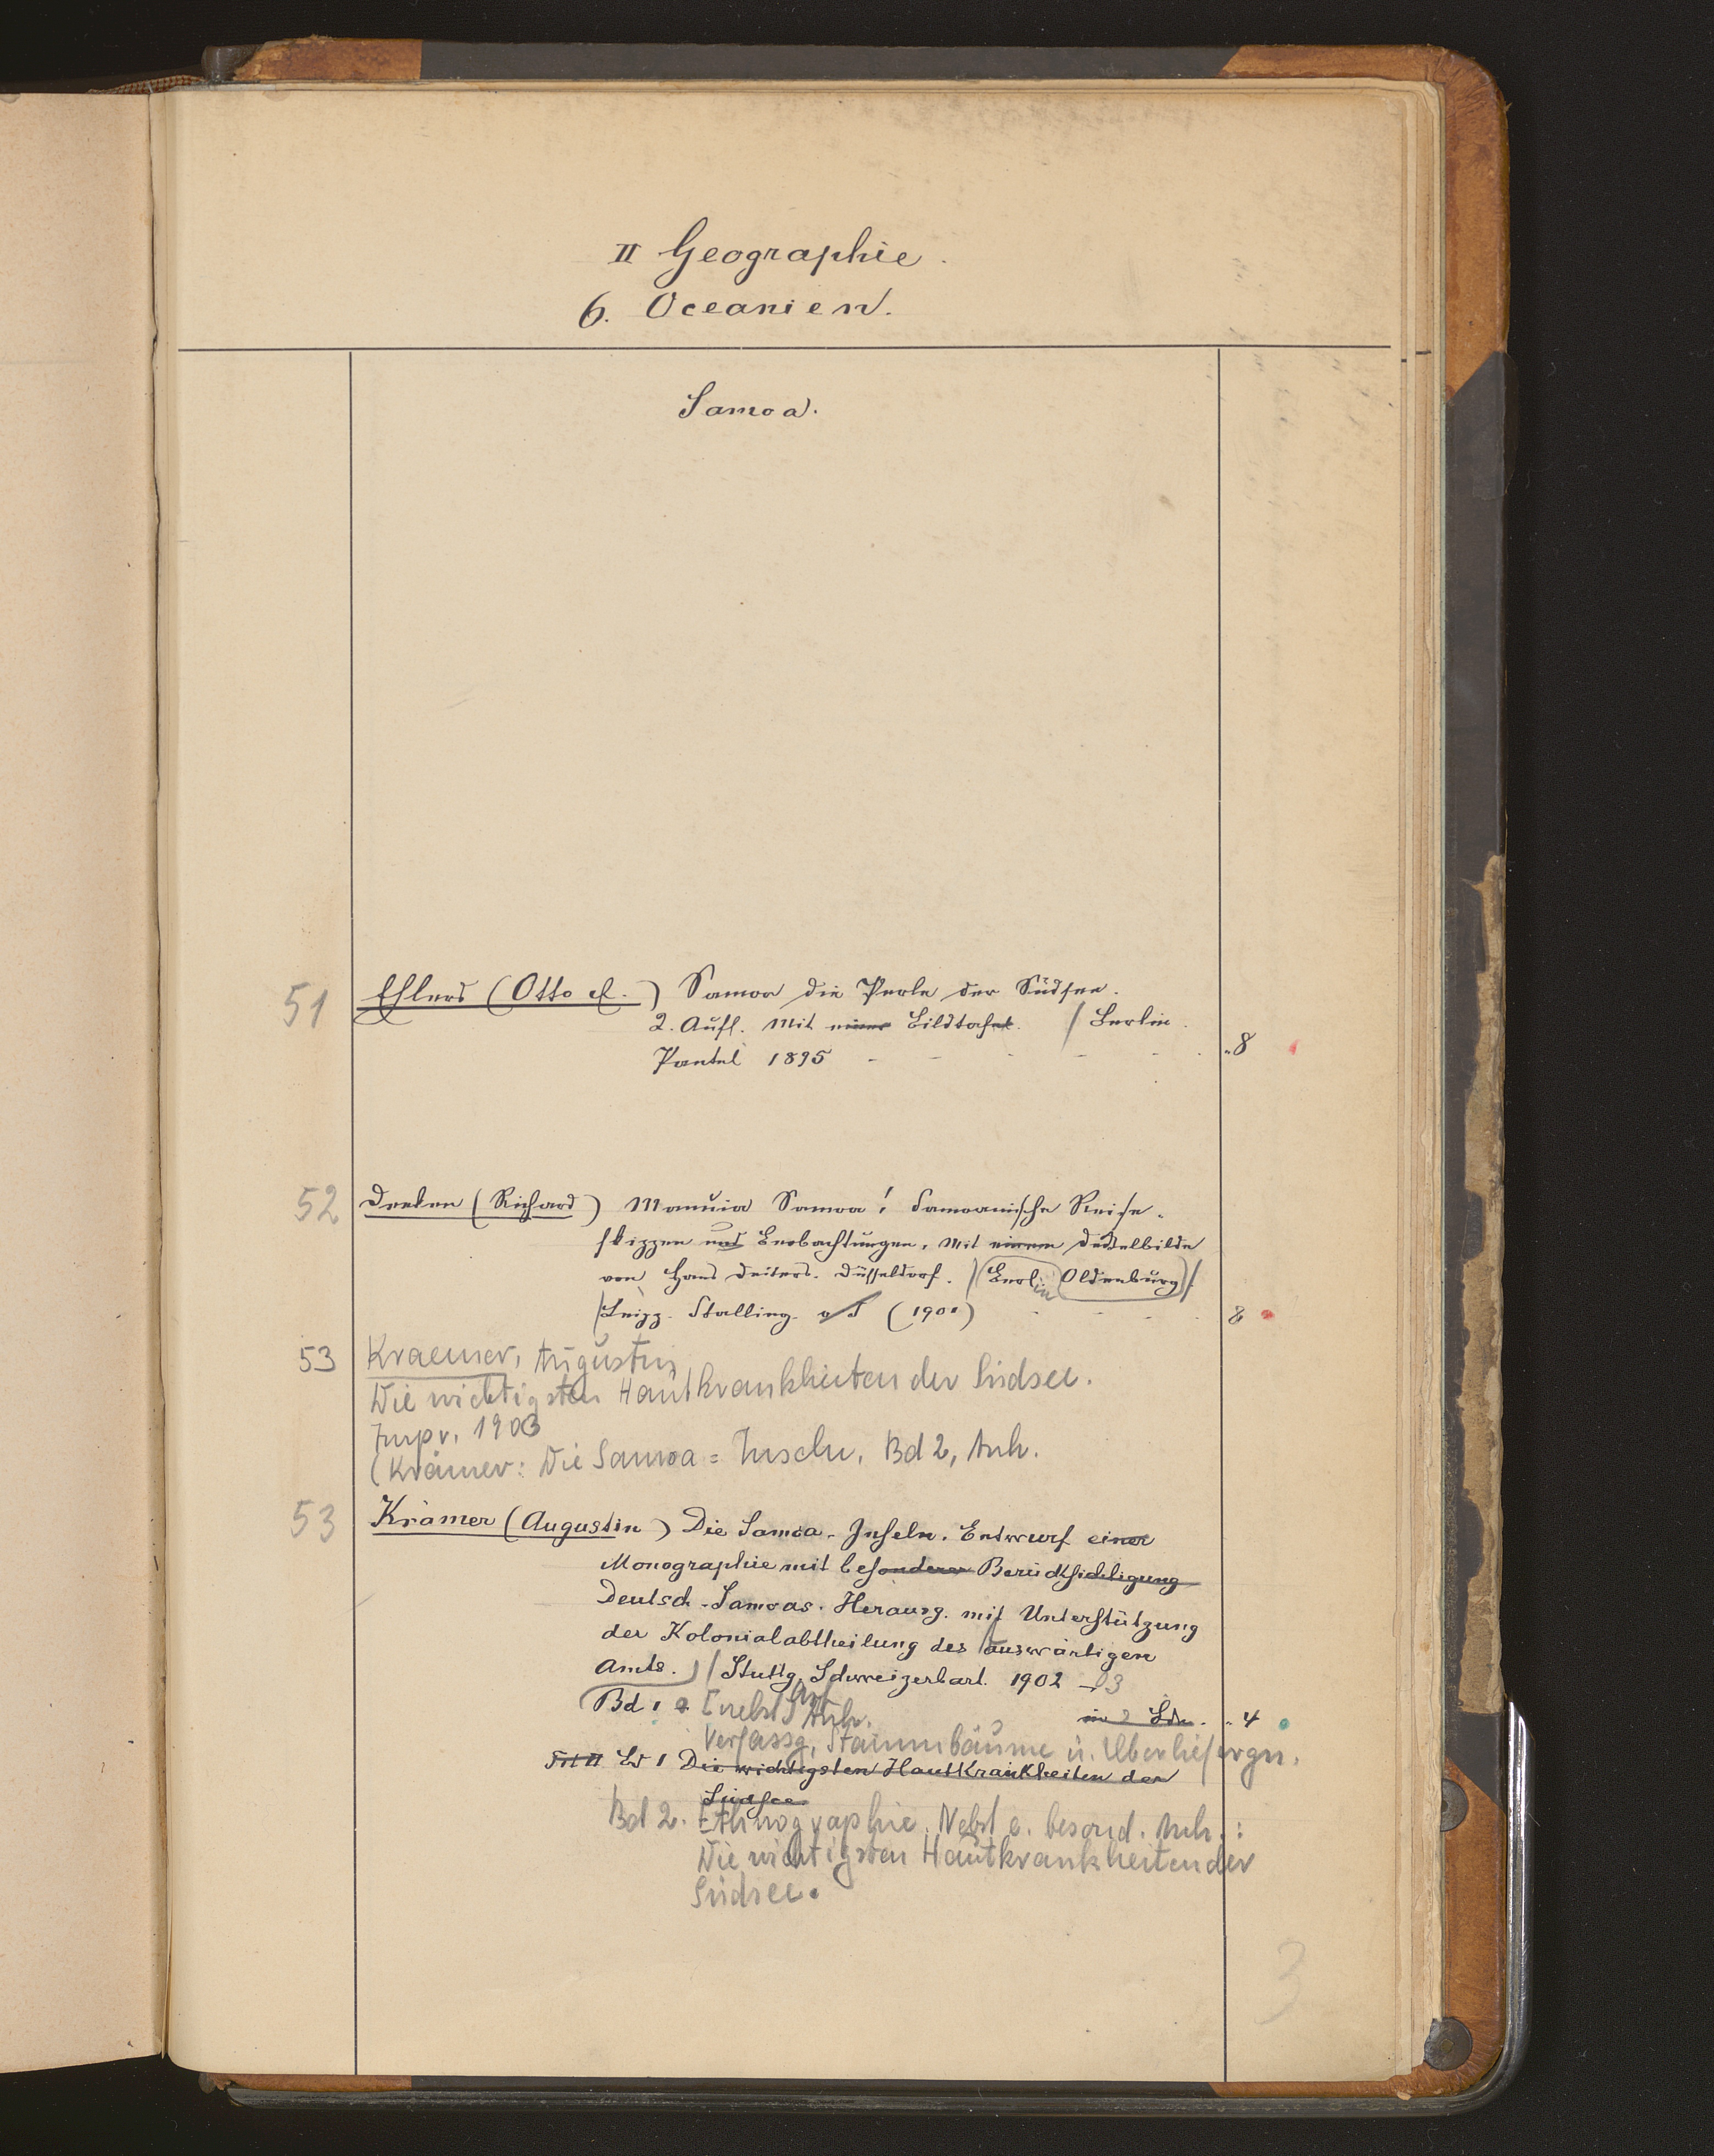 II Geographie.
6. Oceanien.
Samoa.
51 Ehlers (Otto E.) Samoa die Perle der Südsee.
2. Aufl. Mit einer Bildtafel. / Berlin
Paetel 1895 - - - - - "8
52 Deeken (Richard) Manuia Samoa! Samoanische Reise-
skizzen und Beobachtungen. Mit einem Deckelbilde
von Hans Deiters. Düsseldorf. / (Berlin Oldenburg)/
/Leipz. Stalling. o/J (1901) - - - 8
53 Kraemer, Augustin
Die wichtigsten Hautkrankheiten der Südsee.
1903
(Krämer: Die Samoa=Inseln, Bd 2, Anh.
53 Krämer (Augustin) Die Samoa-Inseln. Entwurf einer
Monographie mit besonderer Berücksichtigung
Deutsch-Samoas. Herausg. mit Unterstützung
der Kolonialabtheilung des auswärtigen
Amts.) / Stuttg. Schweizerbart. 1902 -03
Bd 1 [nebst] Anh. in 2 Bdn. "4
Verfassg, Stammbäume u. Überliefergn.
Bd 1 Die wichtigsten Hautkrankheiten der
Südsee
Bd 2. Ethnographie. Nebst e. besond. Anh.:
Die wichtigsten Hautkrankheiten der
Südsee.
3